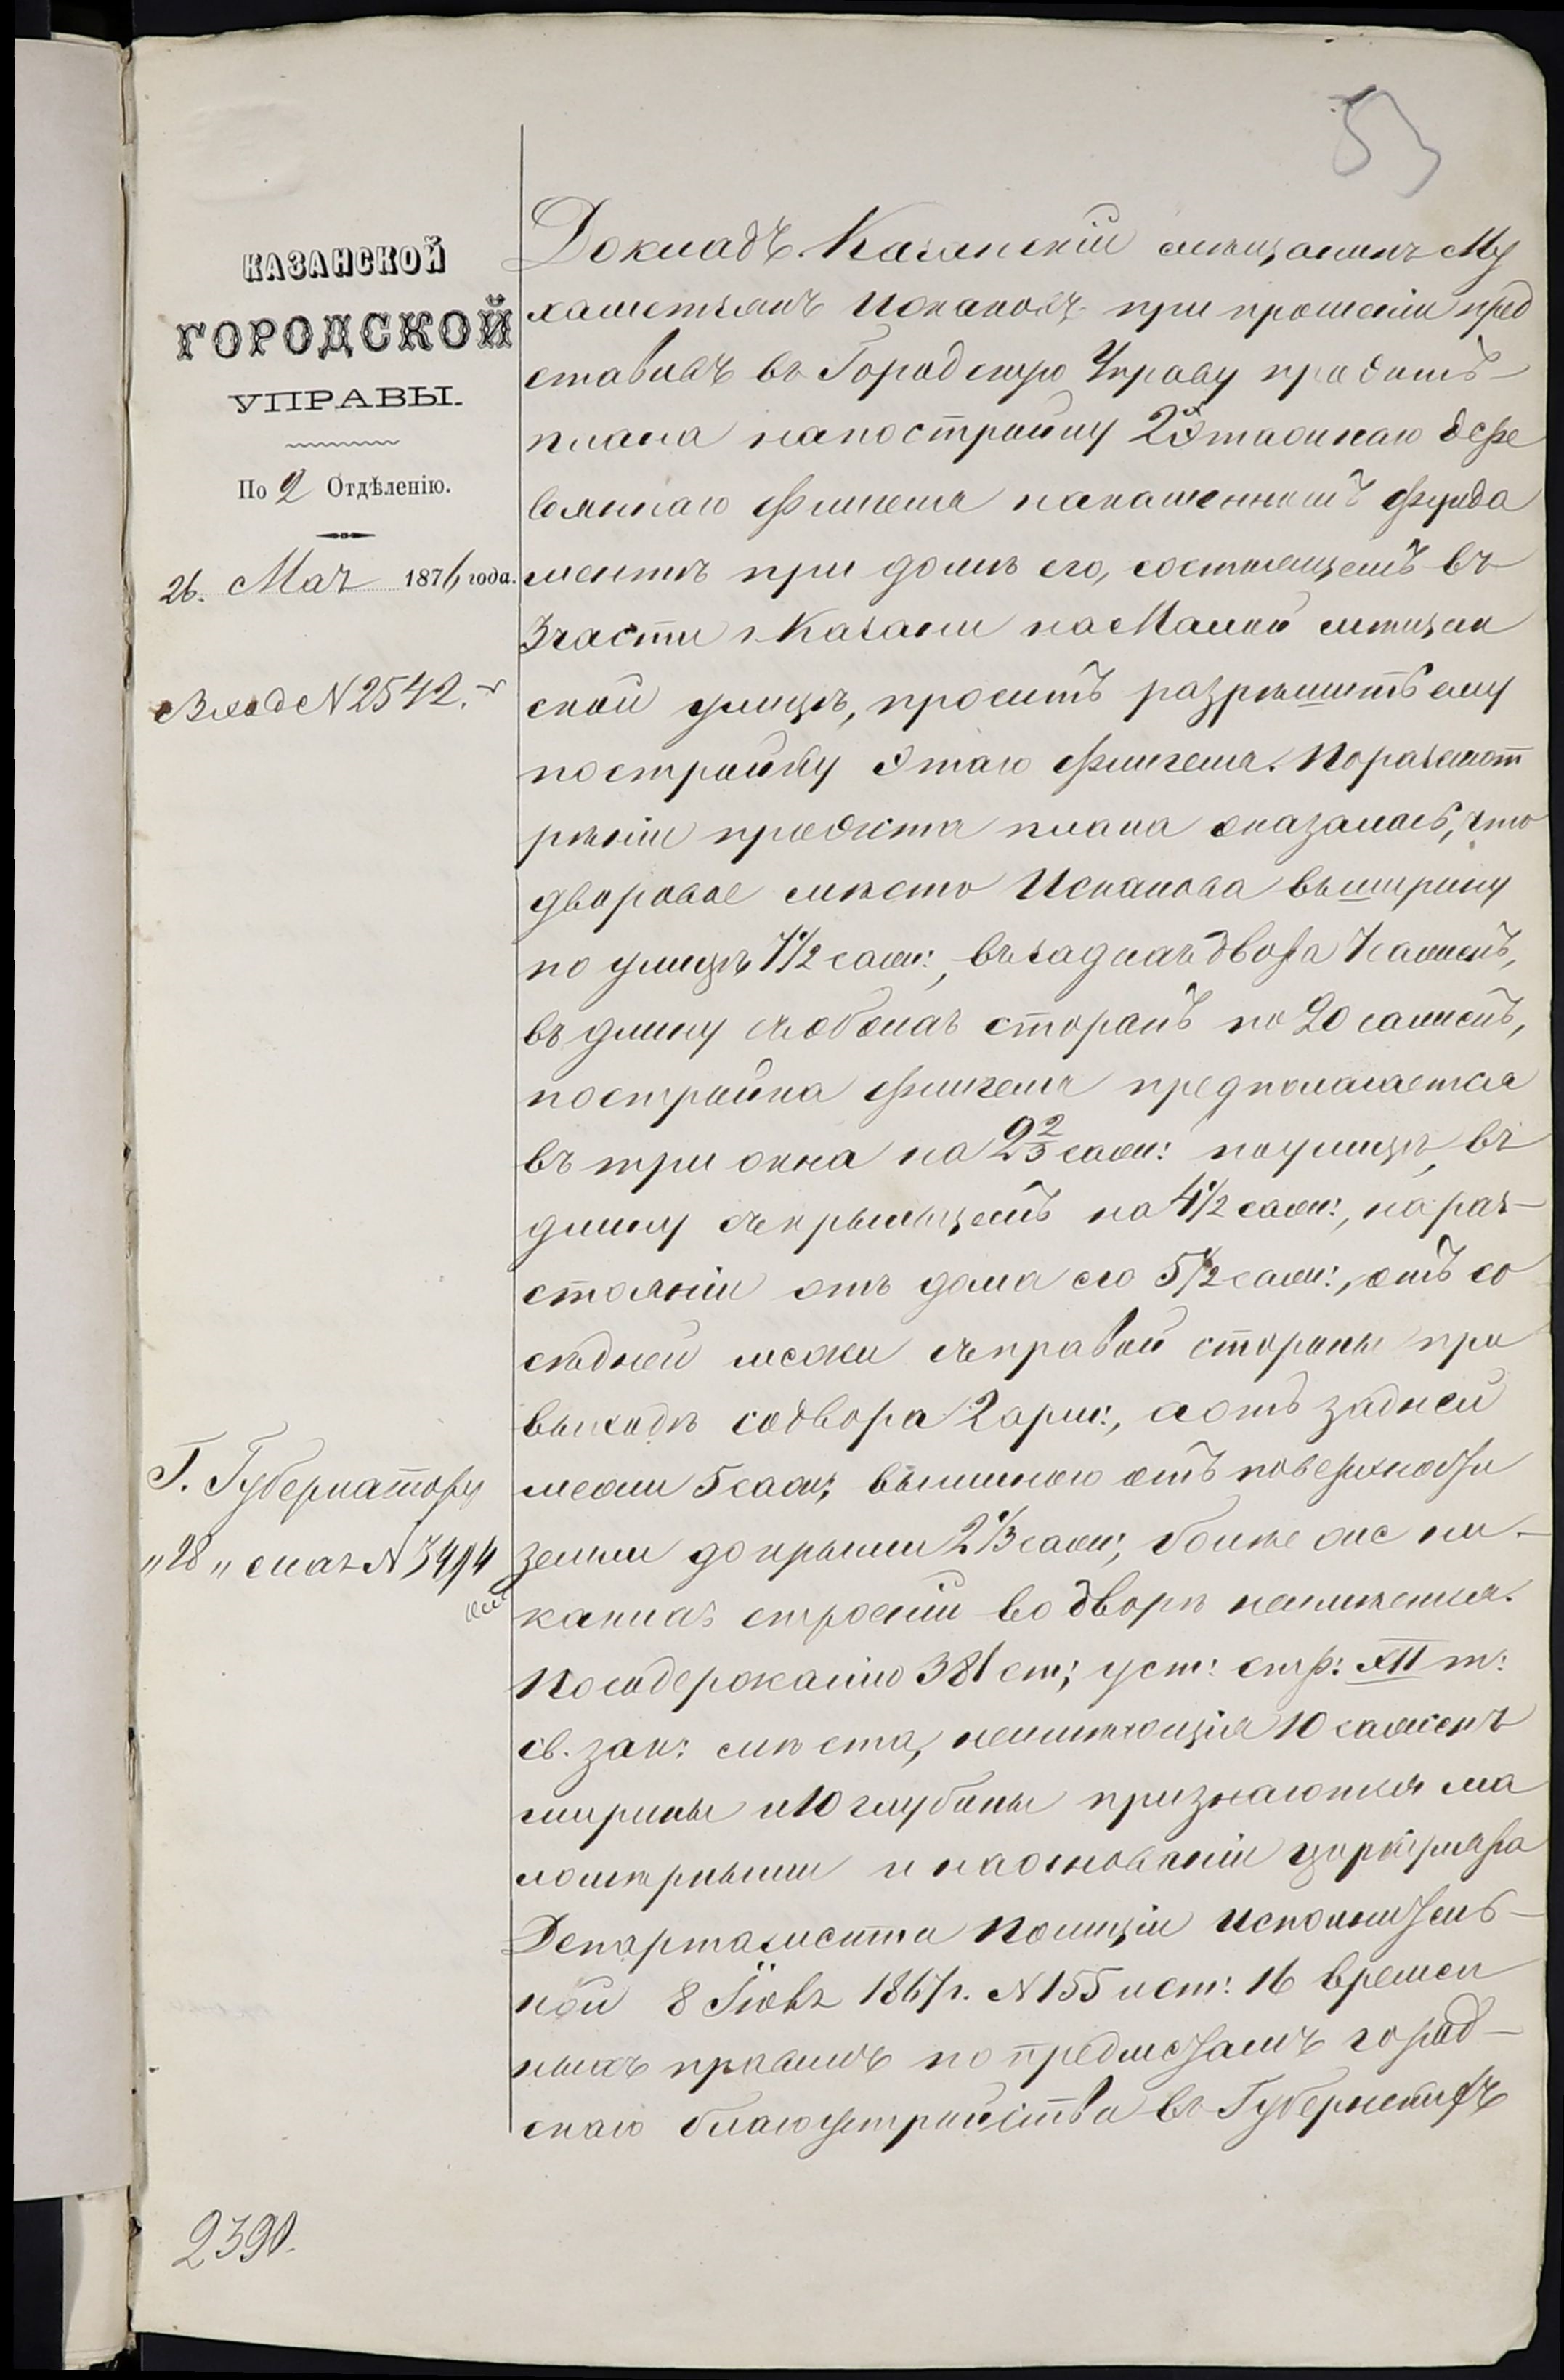 53
КАЗАНСКОЙ
ГОРОДСКОЙ
УПРАВЫ.
По 2 Отдѣленію.
26. Мая 1876 года.
Вход N 2542.
Г. Губернатору
„28„ мая N 3494
2390.
Докладъ. Казанскій мѣщанинъ Му
хаметзянъ Искаковъ при прошеніи пред
ставивъ въ Городскую Управу проэктъ
плана на постройку 2х этажнаго дере
вяннаго флигеля на каменномъ фунда
ментѣ при домѣ его, состоящемъ въ
3 части г. Казани на Малой мѣщан
ской улицѣ, проситъ разрѣшить ему
постройку этаго флигеля. По разсмот
рѣніи проэкта плана оказалось, что
дворовое мѣсто Искакова въ ширину
по улицѣ 7 1/2 саж:, въ задахъ двора 7 сажень,
въ длину съ обоихъ сторонъ по 20 сажень,
постройка флигеля предполагается
въ три окна на 2 2/3 саж: по улицѣ, въ
длину съ крыльцемъ на 4 1/2 саж:, на раз-
стояніи отъ дома его 5 1/2 саж:, отъ со
сѣдней межи съ правой стороны при
выходѣ со двора 2 арш:, а отъ задней
межи 5 саж; вышиною отъ поверхности
земли до крыши 2 1/3 саж; болѣе же ни-
какихъ строеній во дворѣ не имѣется.
По содержанію 381 ст; уст: стр: XII т:
св. зак: мѣста, неимѣющія 10 сажень
ширины и 10 глубины признаются ма
ломѣрными и на основаніи циркуляра
Департамента Полиціи Исполнитель-
ной 8 Іюля 1867 г. N 155 и ст: 16 времен
ныхъ правилъ по предметамъ город-
скаго благоустройства въ Губернскихъ